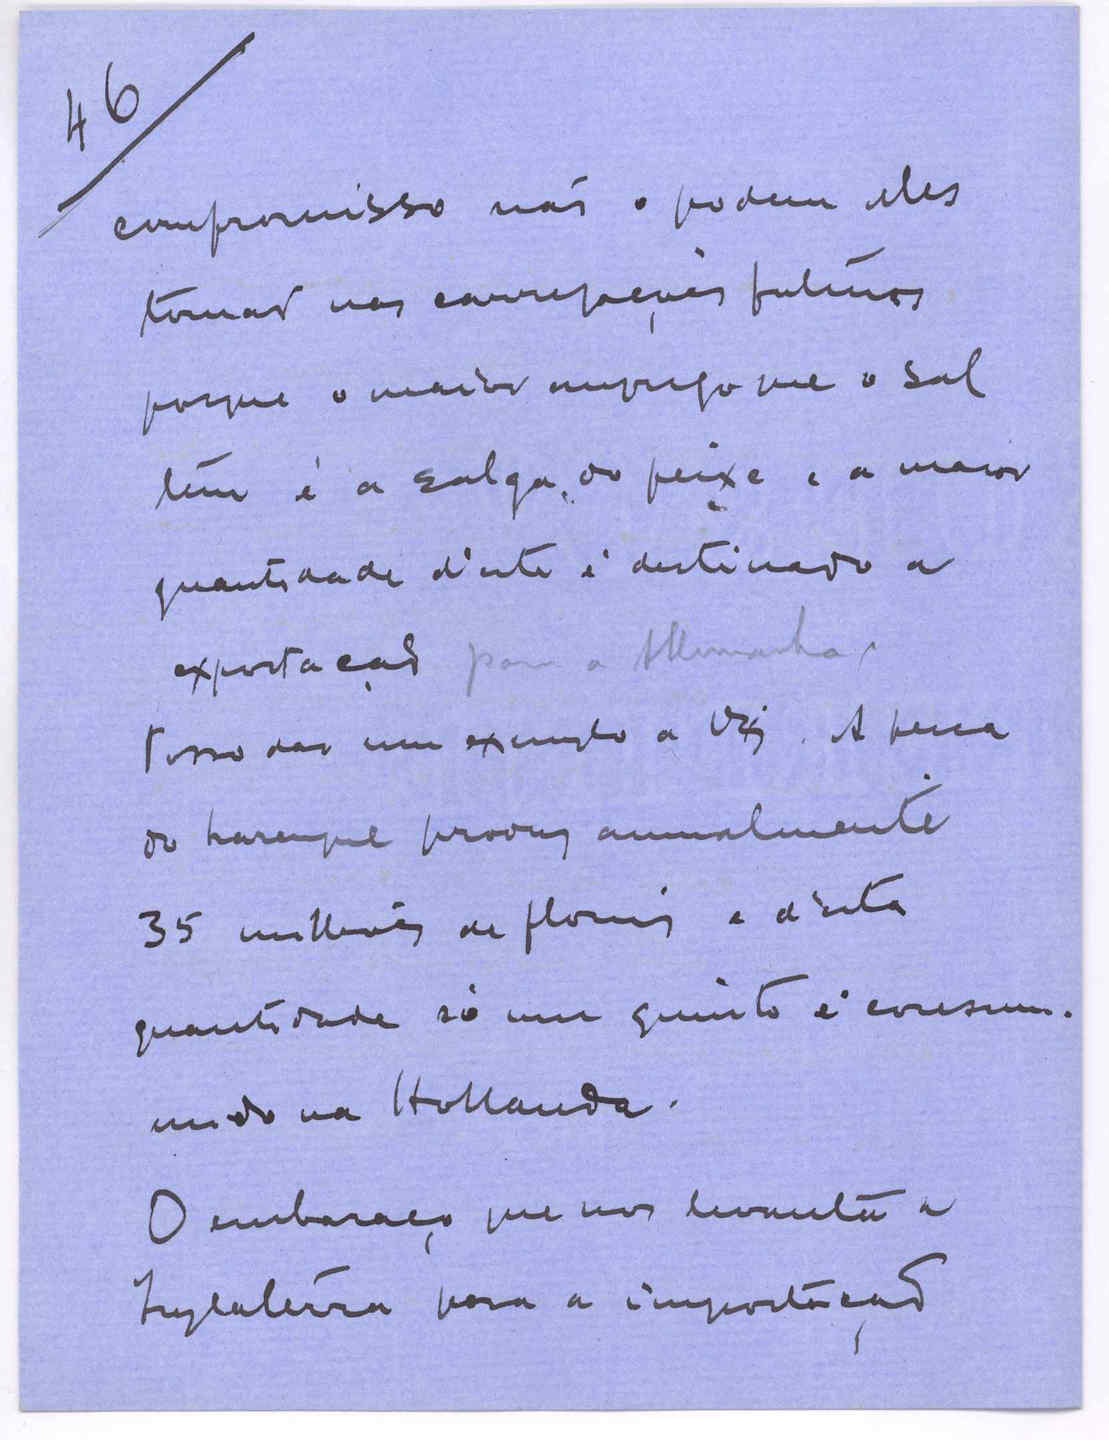 46
compromisso não o podem eles
tomar nas carregações futuras
porque o maior emprego que o sal
tem é a salga do peixe e a maior
quantidade d'este é destinado a
exportação para a Allemanha.
Posso dar um exemplo a VExª. A pesca
do harenque produz annualmente
35 milhões de florins e d'esta
quantidade só um quinto é consum-
mido na Hollanda.
O embaraço que nos levanta a
Inglaterra para a importação